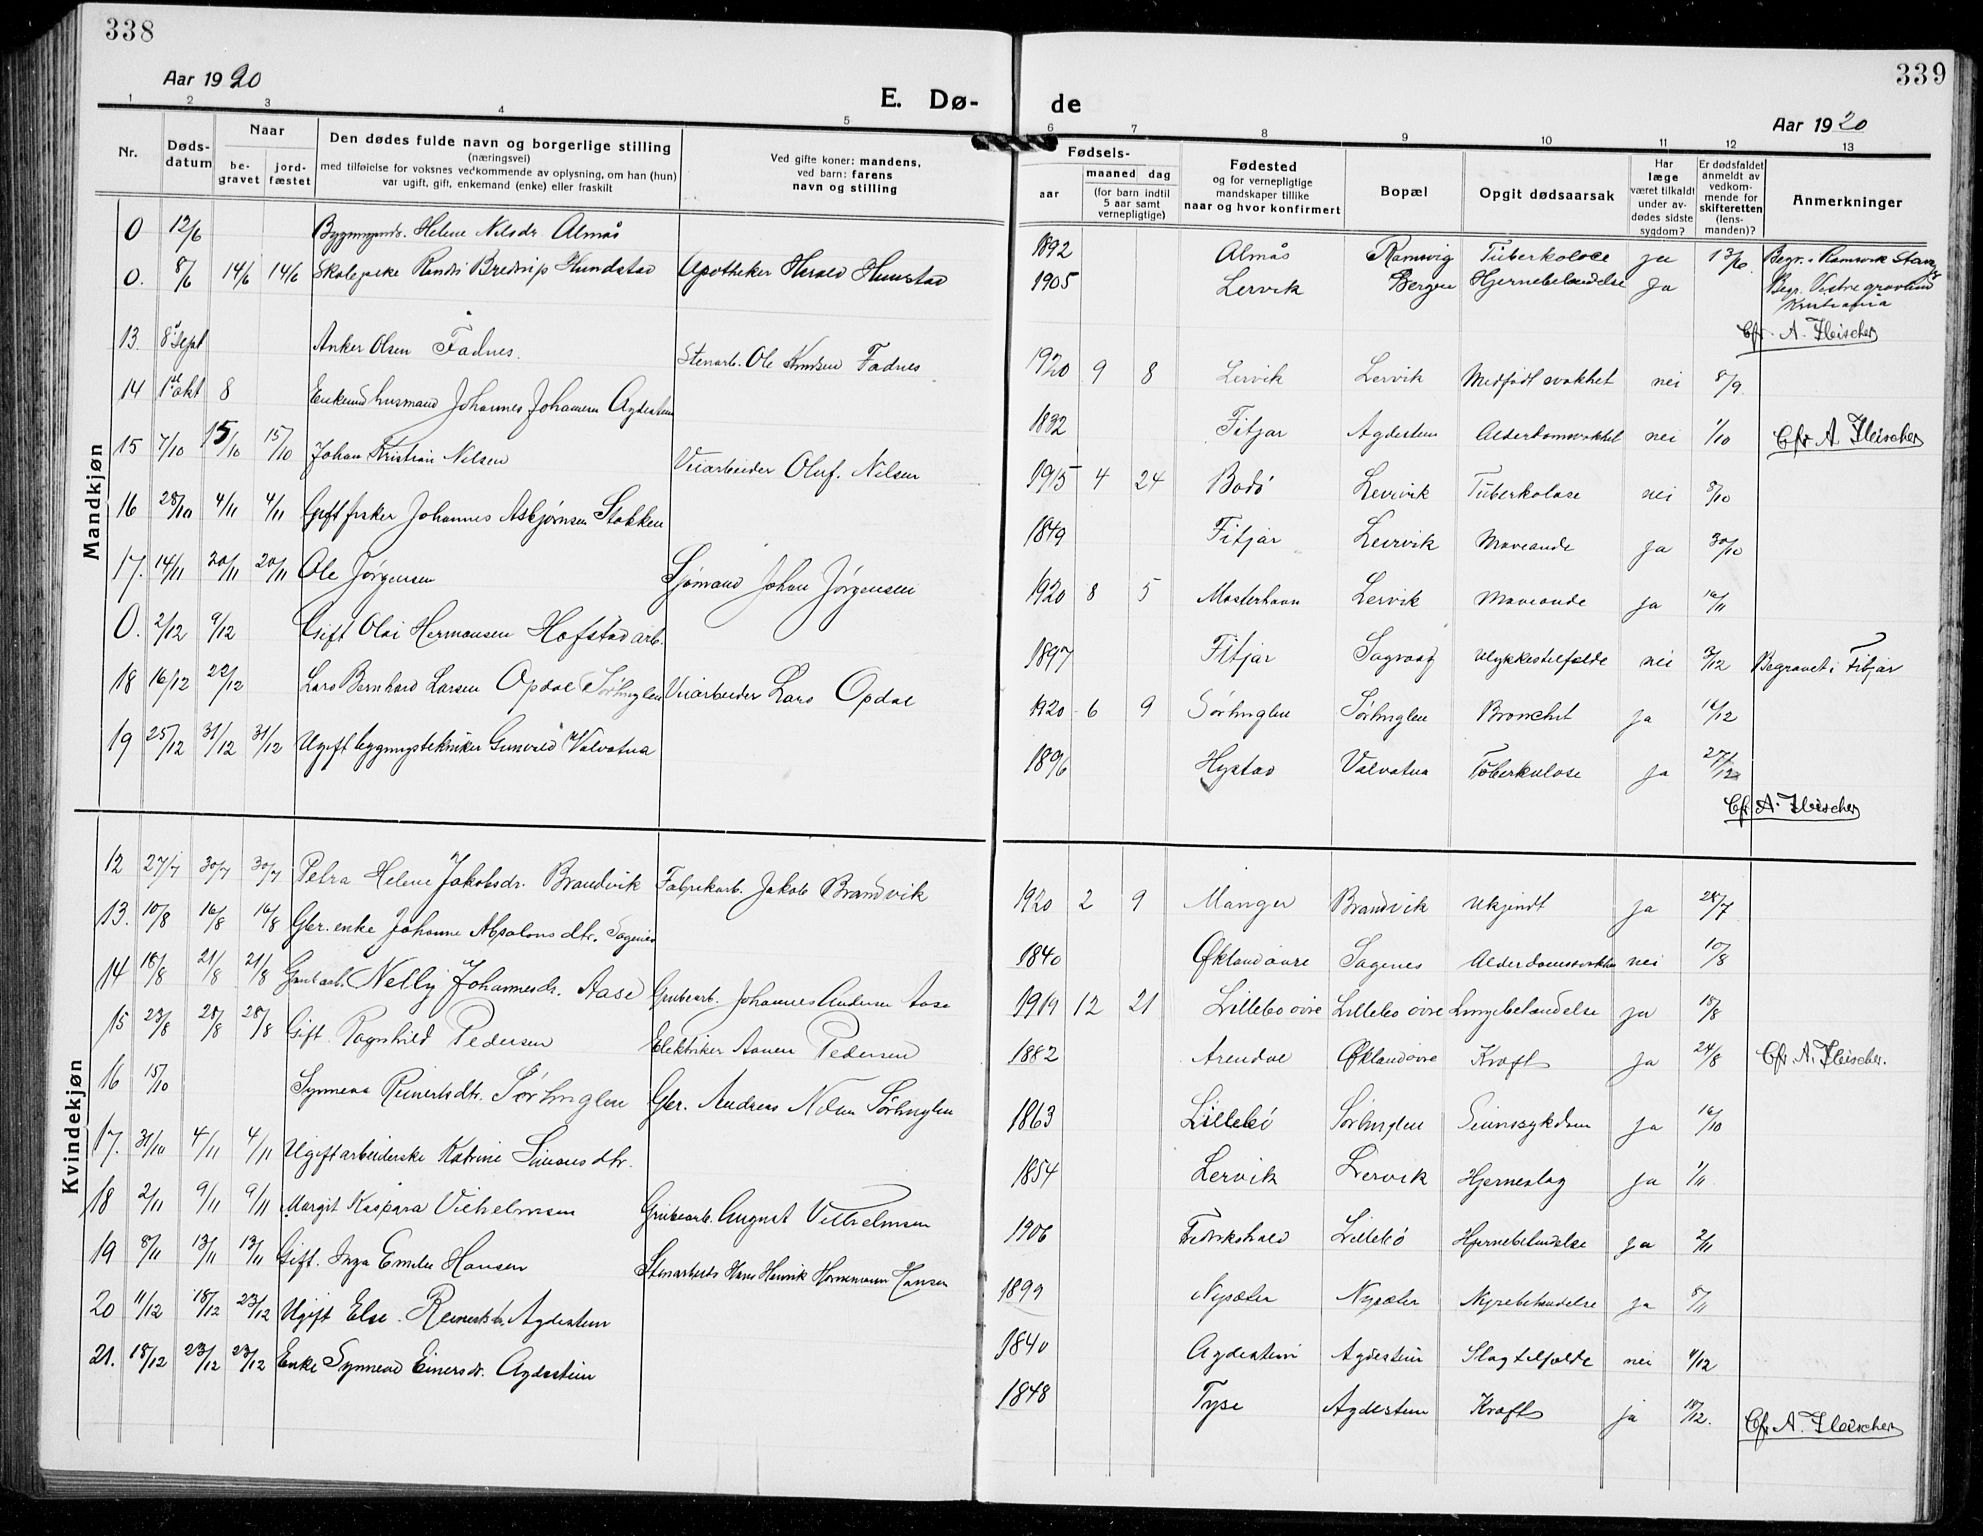 338
339
Aar 1920
E. Dø-
de
Aar 1920
1 2 3 4 5 6 7 8 9 10 11 12 13
Nr.
Døds-
datum
Naar
be-
gravet
jord-
fæstet
Den dødes fulde navn og borgerlige stilling
(næringsvei)
med tilføielse for voksnes vedkommende av oplysning, om han (hun)
var ugift, gift, enkemand (enke) eller fraskilt
Ved gifte koner: mandens,
ved barn: farens
navn og stilling
Fødsels-
aar
maaned dag
(for barn indtil
5 aar samt
vernepligtige)
Fødested
og for vernepligtige
mandskaper tillike
naar og hvor konfirmert
Bopæl
Opgit dødsaarsak
Har
læge
været tilkaldt
under av-
dødes sidste
sygdom?
Er dødsfaldet
anmeldt av
vedkom-
mende for
skifteretten
(lens-
manden)?
Anmerkninger
Mandkjøn
0 12/6 Helene Nilsdr. Almås 1892 Almås Ramsvig Tuberkolose ja 13/6 Begr. i Ramsvik
0. 8/6 14/6 14/6 Skolepike Hundstad Apotheker Hundstad 1905 Lervik Bergen Hjernebetændelse Ja Begr. Vestre gravlund
Kristiania
Cfr. A. Fleischer
13. 8 Sept Anker Olsen Fadnes. Stenarb. Ole Knudsen Fadnes 1920 9 8 Lervik Lervik Medfødt svakhet nei 8/9
14 1ste okt 8 Johannes Johannesen Agdestein 1832 Fitjar Agdestein Alderdomssvakhet nei 1/10 Cfr A. Fleischer
15 7/10 15/10 15/10 Johan Kristian Nilsen Veiarbeider Oluf. Nilsen 1915 4 24 Bodö Leirvik Tuberkolose nei 8/10
16 28/10 4/11 4/11 Gift fisker Johannes Asbjørnsen Stokken 1849 Fitjar Leirvik Maveonde ja 30/10
17. 14/11 20/11 20/11 Ole Jørgensen Sjømand Johan Jørgensen 1920 8 5 Mosterhavn Lervik Maveonde ja 16/11
0. 2/12 9/12 Gift Olai Hermansen Hofstad arb. 1897 Fitjar Sagvaag Ulykkestilfælde nei 3/12 Begravet i Fitjar
18 16/12 22/12 Lars Bernhard Larsen Opdal Sørhuglen Veiarbeider Lars Opdal 1920 6 9 Sørhuglen Sørhuglen Bronchit ja 16/12
19 25/12 31/12 31/12 Ugift bygningstekniker Gunvald Valvatna 1896 Hystad Valvatna Tuberkulose ja 27/12
Cfr A. Fleischer
Kvindekjøn
12 27/7 30/7 30/7 Petra Helene Jakobsdr. Brandvik Fabrikarb. Jakob Brandvik 1920 2 9 Manger Brandvik Ukjendt ja 28/7
13. 10/8 16/8 16/8 Gbr. enke Johanne Absalonsdtr. Sagenes 1840 Økland øvre Sagenes Alderdomssvakhet nei 10/8
14 18/8 21/8 21/8 Grubearb. Nelly Johannesdr. Aase Grubearb. Johannes Andersen Aase 1919 12 21 Lillebø øvre Lillebø øvre Lungebetændelse ja 18/8
15 23/8 28/8 28/8 Gift Ragnhild Pedersen Elektriker Pedersen 1882 Arendal Økland øvre Kræft ja 24/8 Cfr. A. Fleischer.
16 15/10 Synneva Reinertsdtr. Sørhuglen Gbr. Andreas Nilsen Sørhuglen 1863 Lillebø Sørhuglen Sindssykdom ja 16/10
17. 31/10 4/11 4/11 Ugift arbeiderske Katrine Simonsdtr. 1854 Lervik Lervik Hjerneslag ja 1/11
18 2/11 9/11 9/11 Margit Kaspara Vilhelmsen Grubearb. August Vilhelmsen 1906 Fredrikshald Lillebø Hjernebetændelse ja 2/11
19 8/11 13/11 13/11 Gift. Inga Emilie Hansen Stenarbeider Hans Henrik Hansen 1899 Nysæter Nysæter Nyrebetændelse ja 8/11
20 11/12 18/12 23/12 Ugift Else Reinertsdr. Agdestein 1840 Agdestein Agdestein Slagtilfælde nei 11/12
21. 18/12 23/12 23/12 Enke Synneva Einersdr. Agdestein 1848 Tyse Agdestein Kræft ja 18/12.
Cfr A. Fleischer